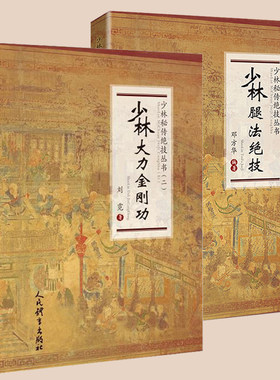 少林秘传绝技丛书(二)
少林大力金刚功
刘宽
著
人民体育出版社
少林秘传绝技丛书
少林腿法绝技
邓方华
编著